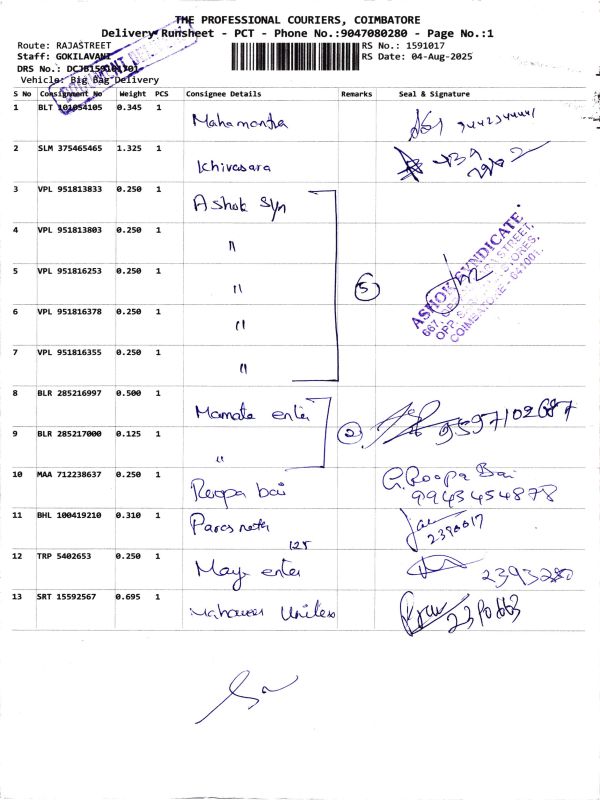 THE PROFESSIONAL COURIERS, COIMBATORE
Delivery Runsheet - PCT - Phone No.:9047080280 - Page No.:1
Route: RAJASTREET RS No.: 1591017
Staff: GOKILAVANI RS Date: 04-Aug-2025
DRS No.:
Vehicle: Big Bag Delivery
S No Consignment No Weight PCS Consignee Details Remarks Seal & Signature
1 BLT 101054105 0.345 1 Mahamantra
2 SLM 375465465 1.325 1 Khivasara
3 VPL 951813833 0.250 1 Ashok Syn
4 VPL 951813803 0.250 1 "
5 VPL 951816253 0.250 1 " 5
6 VPL 951816378 0.250 1 "
7 VPL 951816355 0.250 1 "
ASHOK SYNDICATE.
COIMBATORE - 641001.
8 BLR 285216997 0.500 1 Mamata enter
9 BLR 285217000 0.125 1 " 2 9597102687
10 MAA 712238637 0.250 1 Roopa bai G. Roopa Bai
9943454878
11 BHL 100419210 0.310 1 Paras 2390017
125
12 TRP 5402653 0.250 1 May enter 2393280
13 SRT 15592567 0.695 1 2390663